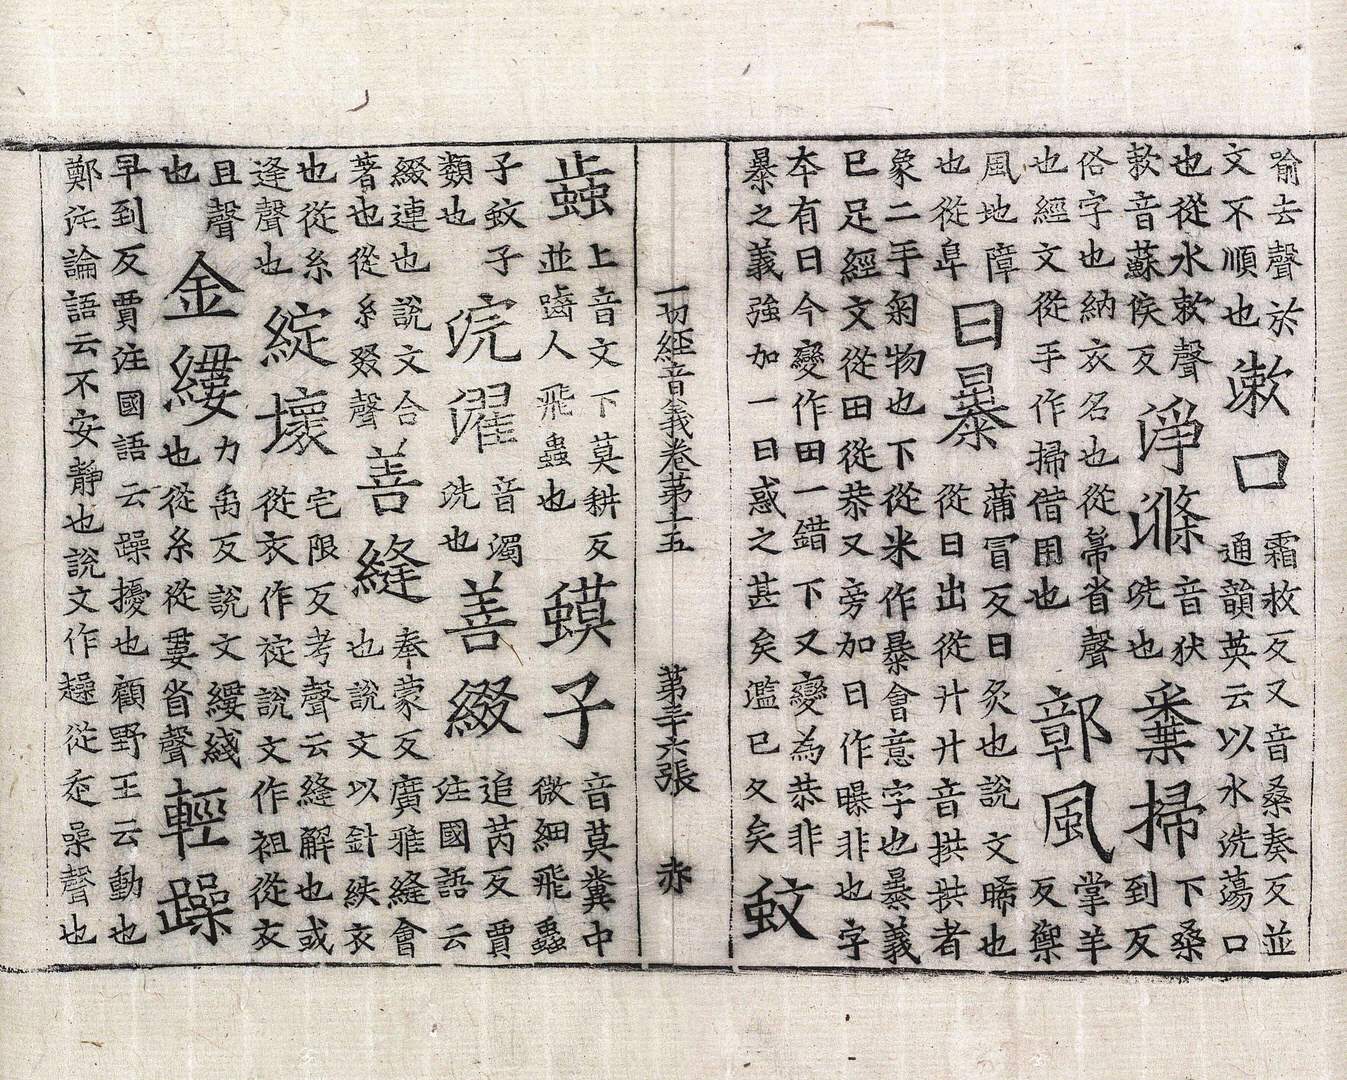 喻去聲於
文不順也
漱口
霜救反又音桑奏反並
通韻英云以水洗蕩口
也從水欶聲
欶音蘇候反
淨滌
音狄
洗也
糞掃
下桑
到反
俗字也納衣名也從帚省聲
也經文從手作掃借用也
鄣風
掌羊
反禦
風地障
也從阜
日暴
蒲冒反日炙也說文晞也
從日出從廾廾音拱拱者
象二手匊物也下從米作暴會意字也暴義
已足經文從田從恭又旁加日作曝非也字
本有日今變作田一錯下又變為恭非
暴之義強加一日惑之甚矣濫已久矣
蚊
一切經音義卷第十五 第三十六張 赤
蝱
上音文下莫耕反
並齧人飛蟲也
蟆子
音莫糞中
微細飛蟲
子蚊子
類也
浣濯
音濁
洗也
善綴
追芮反賈
注國語云
綴連也說文合
著也從糸叕聲
善縫
奉蒙反廣雅縫會
也說文以針紩衣
也從糸
逢聲也
綻壞
宅限反考聲云縫解也或
從衣作䘺說文作袒從衣
且聲
也
金縷
力禹反說文縷綫
也從糸從婁省聲
輕躁
早到反賈注國語云躁擾也顧野王云動也
鄭注論語云不安靜也說文作趮從走喿聲也